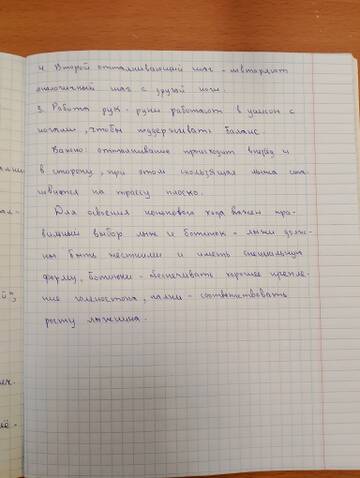 4. Второй отталкивающий шаг - повторяет
аналогичный шаг с другой ноги.
5. Работа рук - руки работают в унисон с
ногами, чтобы поддерживать баланс.
Важно: отталкивание происходит вперёд и
в сторону, при этом скользящая лыжа ста-
вится на трассу плоско.
Для освоения конькового хода важен пра-
вильный выбор лыж и ботинок - лыжи долж-
ны быть жесткими и иметь специальную
форму, ботинки - обеспечивать хорошее крепле-
ние голеностопа, палки - соответствовать
росту лыжника.